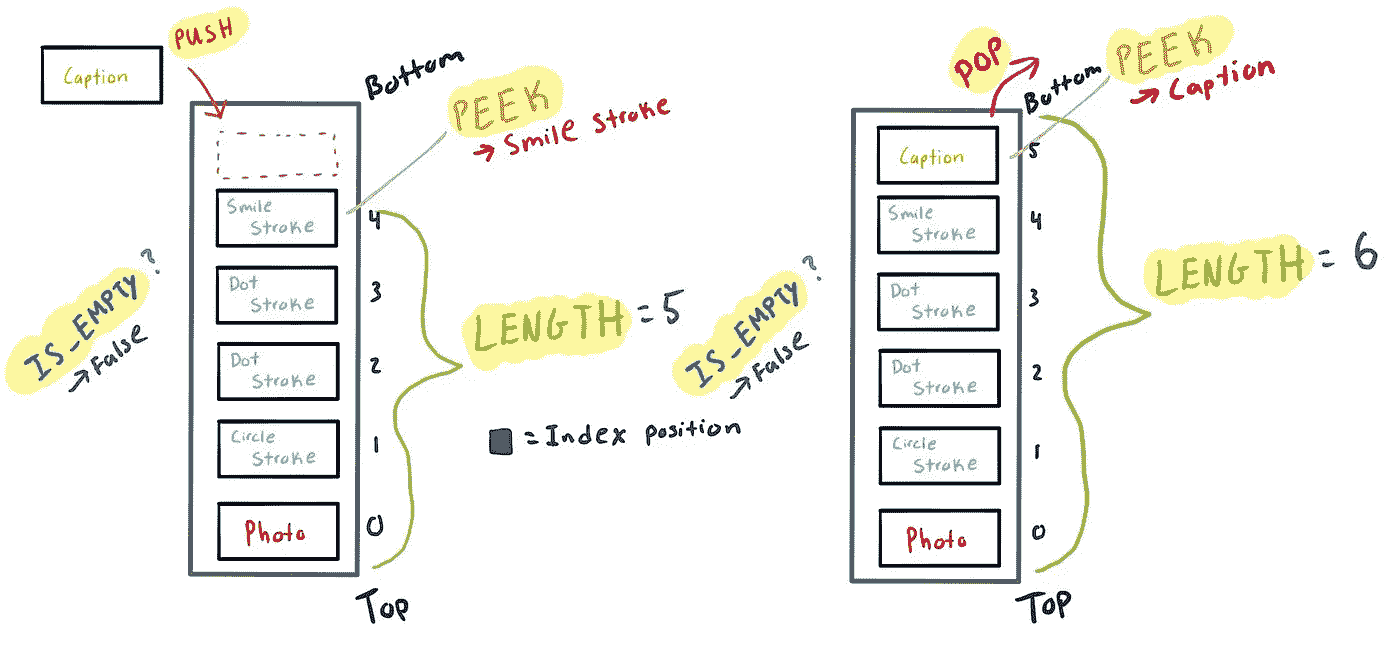 Caption
PUSH
Bottom
PEEK
→ Smile Stroke
Smile
Stroke
4
Dot
Stroke
3
Dot
Stroke
2
Circle
Stroke
1
Photo
0
Top
IS_EMPTY?
→ False
LENGTH = 5
= Index position
POP
Bottom
PEEK
→ Caption
Caption
5
Smile
Stroke
4
Dot
Stroke
3
Dot
Stroke
2
Circle
Stroke
1
Photo
0
Top
IS_EMPTY?
→ False
LENGTH = 6